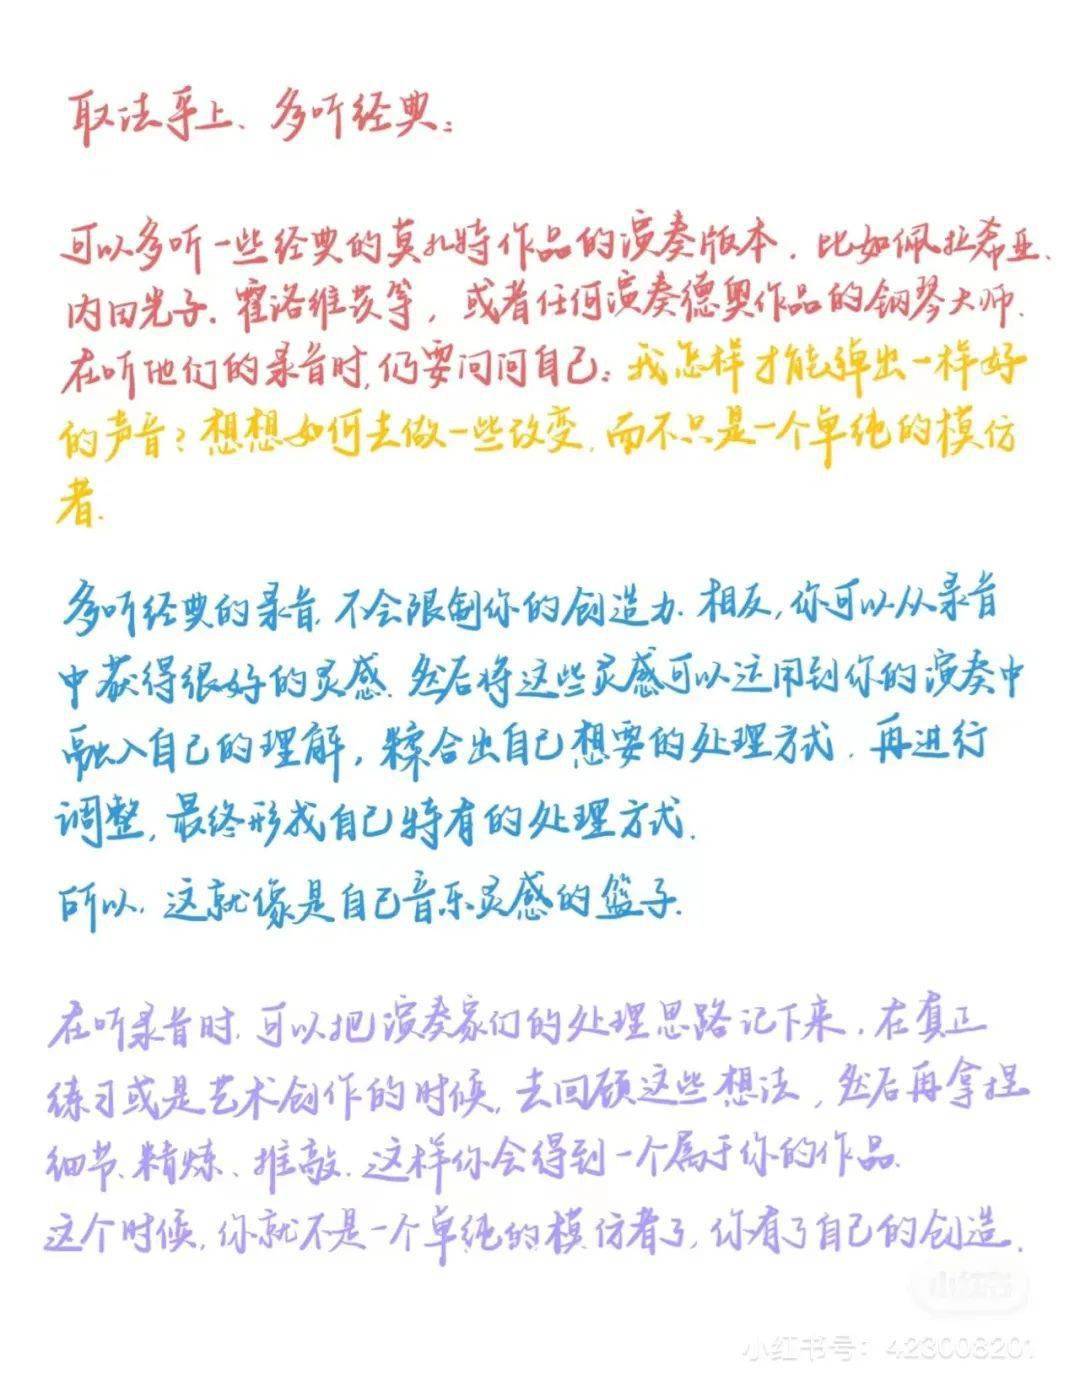 取法乎上、多听经典：
可以多听一些经典的莫扎特作品的演奏版本，比如佩拉希亚、
内田光子、霍洛维茨等，或者任何演奏德奥作品的钢琴大师.
在听他们的录音时，仍要问问自己：我怎样才能弹出一样好
的声音？想想如何去做一些改变，而不只是一个单纯的模仿
者.
多听经典的录音，不会限制你的创造力.相反，你可以从录音
中获得很好的灵感.然后将这些灵感可以运用到你的演奏中
融入自己的理解，糅合出自己想要的处理方式.再进行
调整，最终形成自己特有的处理方式.
所以，这就像是自己音乐灵感的篮子.
在听录音时，可以把演奏家们的处理思路记下来，在真正
练习或是艺术创作的时候，去回顾这些想法，然后再拿捏
细节、精炼、推敲.这样你会得到一个属于你的作品.
这个时候，你就不是一个单纯的模仿者了，你有了自己的创造.
小红书
小红书号：423008201